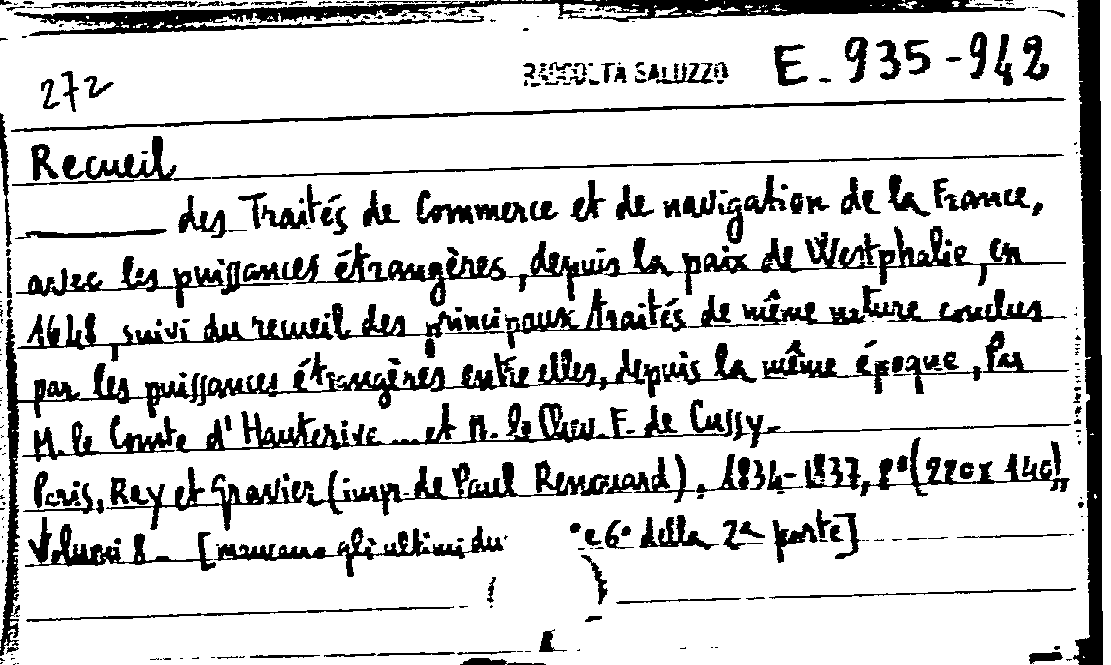 272 RACCOLTA SALUZZO E. 935-942
Recueil
des Traités de Commerce et de navigation de la France,
avec les puissances étrangères, depuis la paix de Westphalie, en
1648, suivi du recueil des principaux traités de même nature conclus
par les puissances étrangères entre elles, depuis la même époque, Par
M. le Comte d'Hauterive ... et M. le Chev. F. de Cussy.
Paris, Rey et Gravier (impr. de Paul Renouard), 1834-1837, 8° (220x140),
Volumi 8. - [mancano gli ultimi du ° e 6° della 2ª parte]